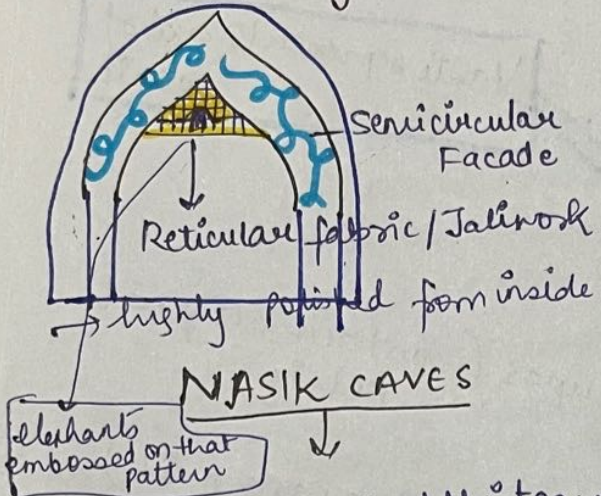 Semicircular
Facade
Reticular fabric/Jaliwork
→ highly polished from inside
NASIK CAVES
elephants
embossed on that
pattern